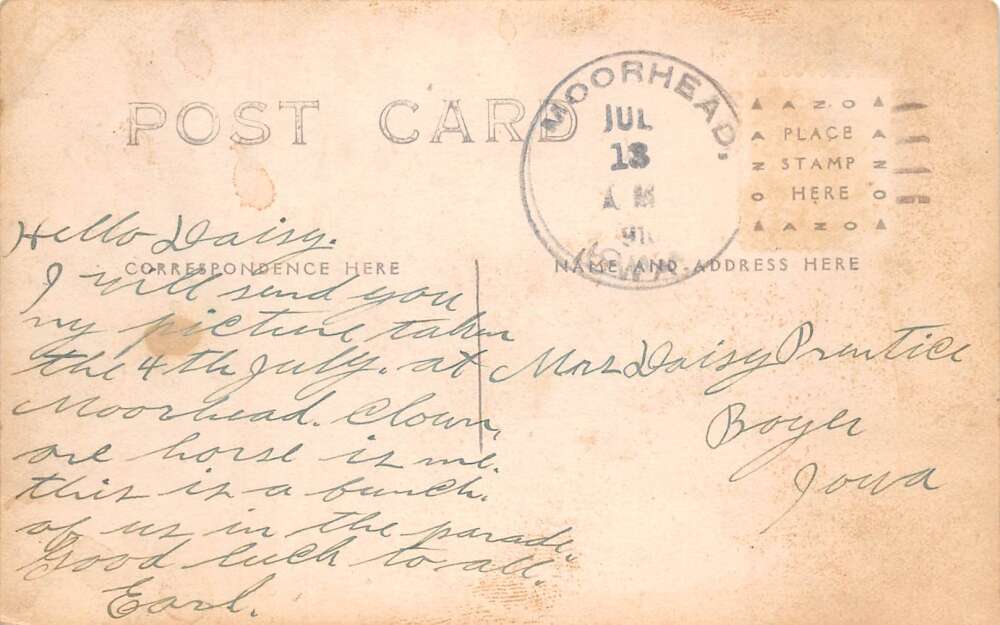 POST CARD
MOORHEAD,
JUL
13
A M
191
IOWA
AZO
PLACE
STAMP
HERE
AZO
AZO
AZO
CORRESPONDENCE HERE
NAME AND ADDRESS HERE
Hello Daisy.
I will send you
my picture taken
the 4th July. at
Moorhead. Clown,
one horse is me.
this is a bunch.
of us in the parade.
Good luck to all.
Earl.
Mrs Daisy Prentice
Boyer
Iowa